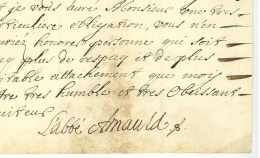 et je vous auré Monsieur une tres
ticuliere obligation, vous n'en
uriez honorer personne qui soit
ec plus de respect et de plus
itable attachement que moy
tre tres humble et tres obeissant
uiteur
L'abbé Arnauld